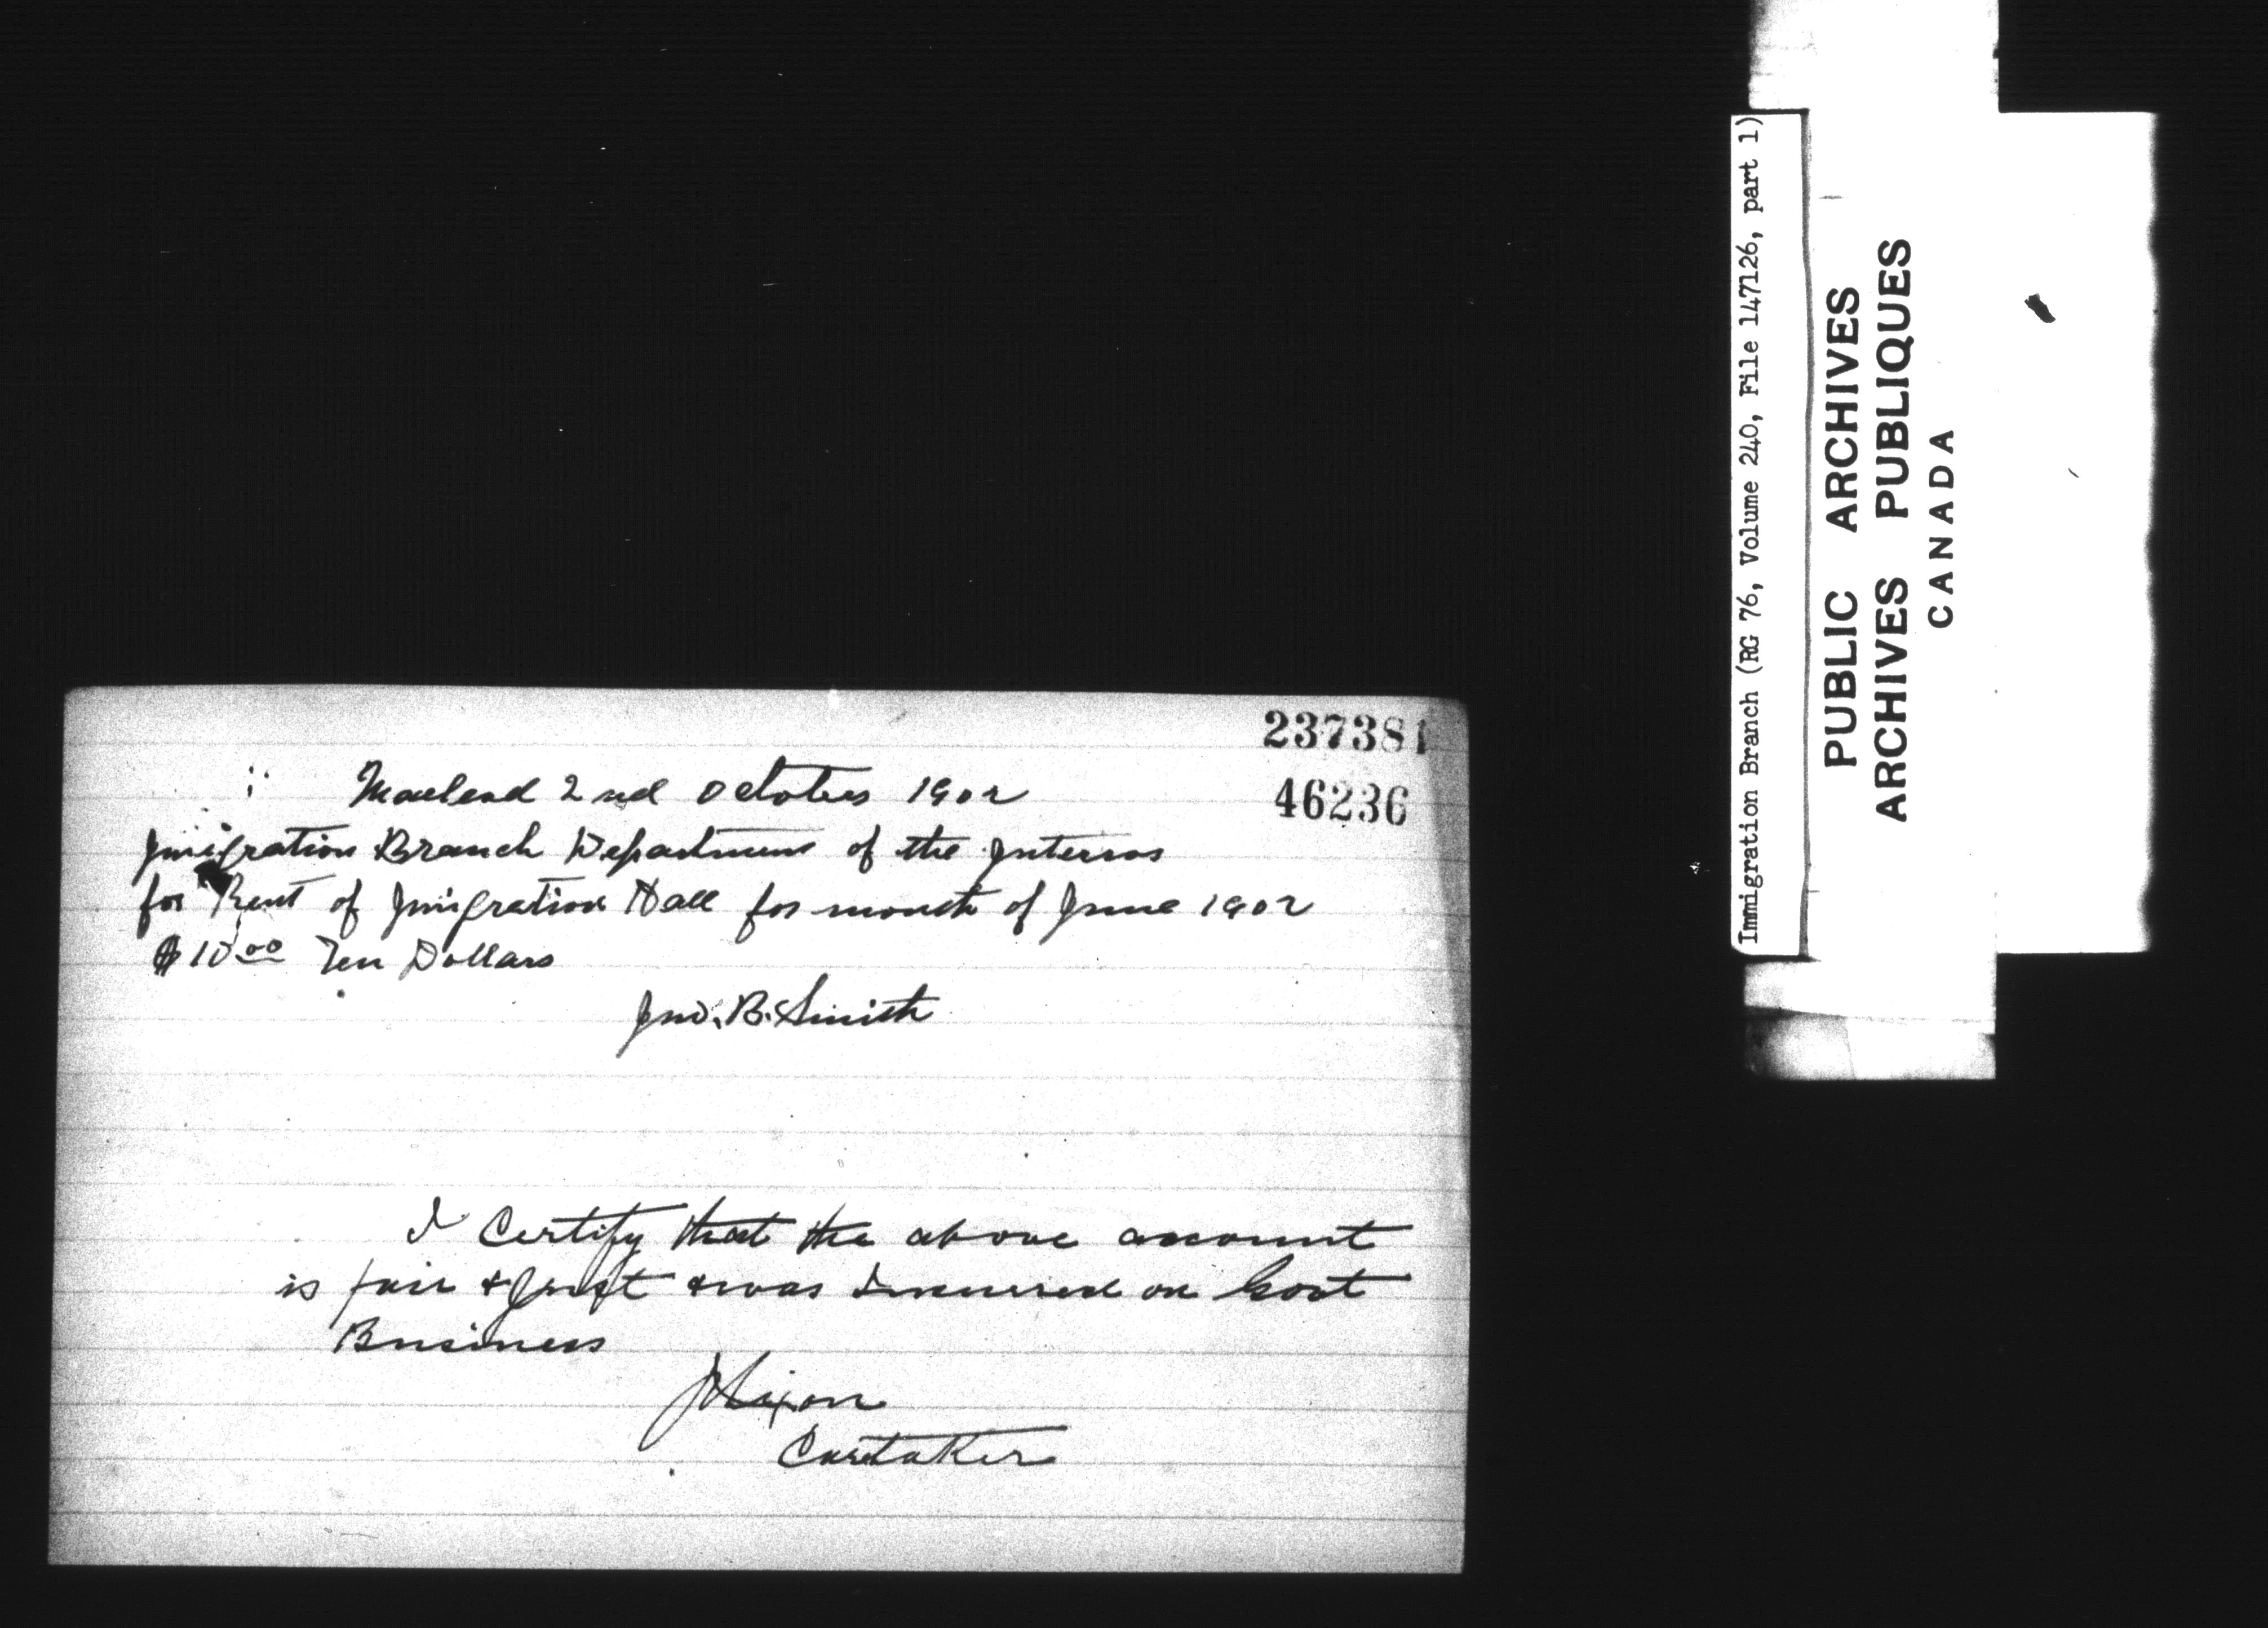 237381
46236
Macleod 2nd October 1902
Imigration Branch Department of the Interior
for Rent of Imigration Hall for month of June 1902
$10.00 Ten Dollars
Jno. B. Smith
I Certify that the above account
is fair & Just & was Incurred on Govt
Business
Caretaker
Immigration Branch (RG 76, Volume 240, File 147126, part 1)
PUBLIC ARCHIVES
ARCHIVES PUBLIQUES
CANADA